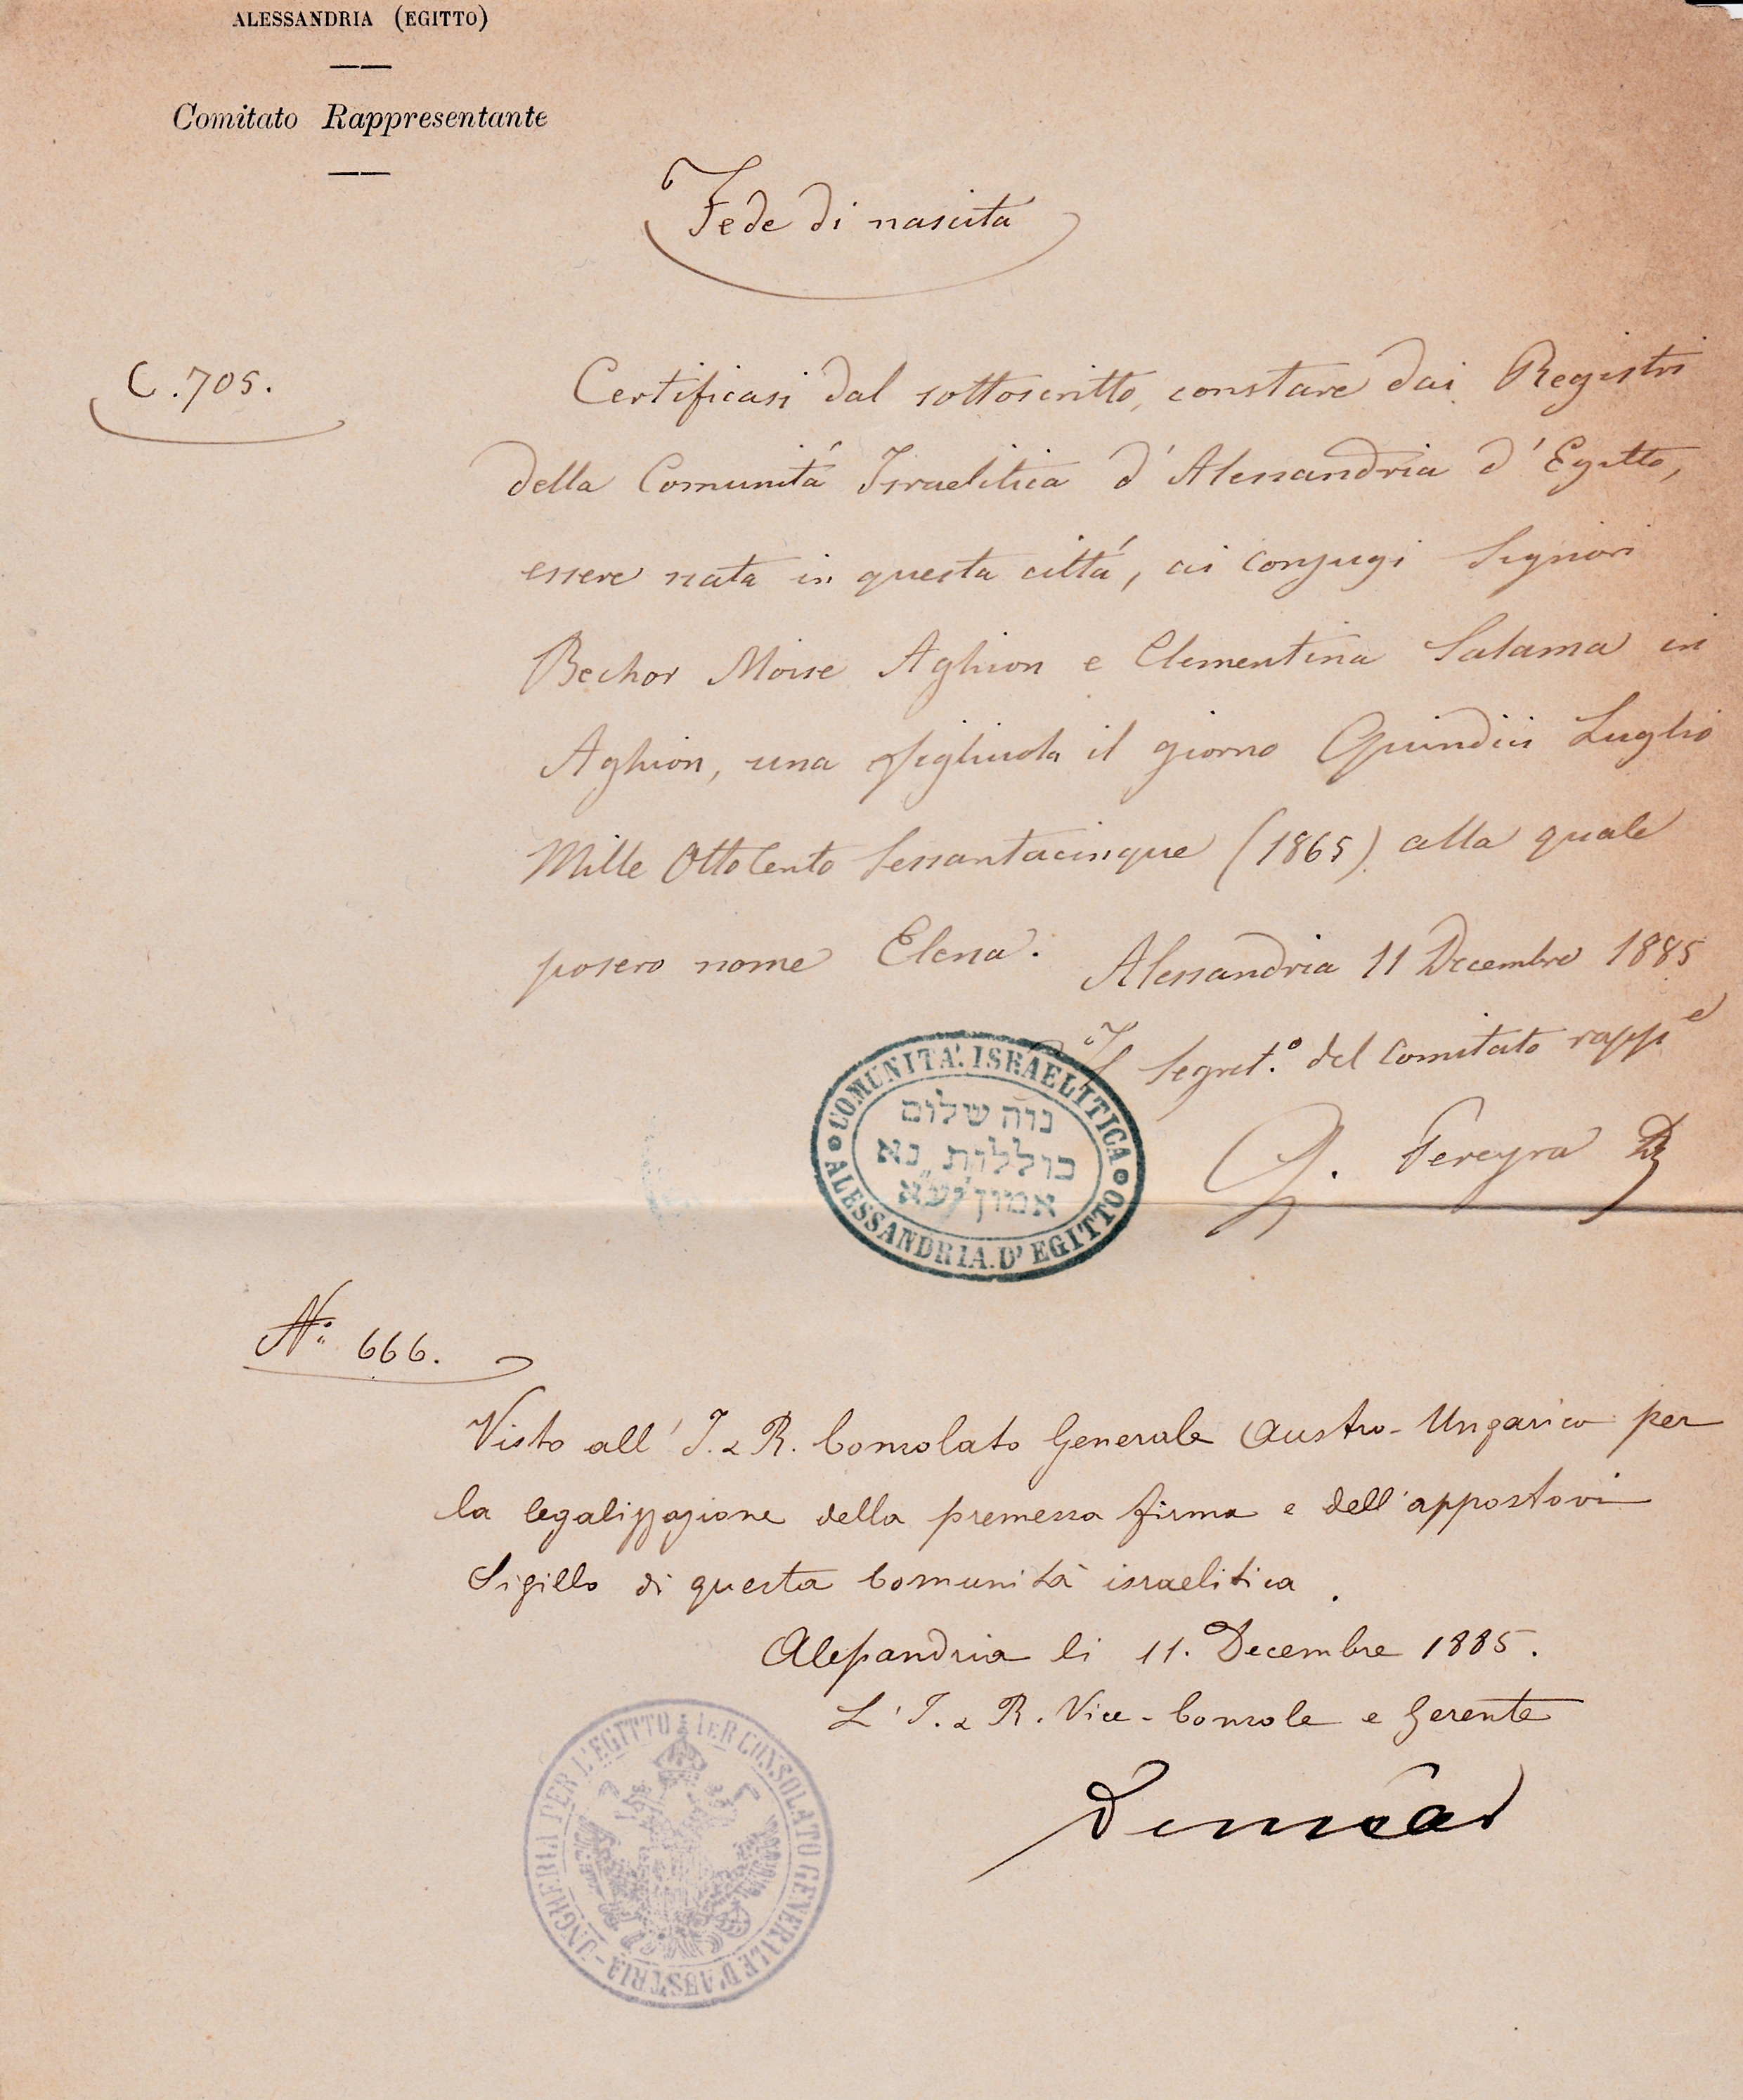 ALESSANDRIA (EGITTO)
Comitato Rappresentante
Fede di nascita
C. 705.
Certificasi dal sottoscritto, constare dai Registri
della Comunitá Israelitica d'Alessandria d'Egitto,
essere nata in questa cittá, ai conjugi Signori
Bechor Moise Aghion e Clementina Salama in
Aghion, una figliuola il giorno Quindici Luglio
Mille Ottocento Sessantacinque (1865) alla quale
posero nome Elena.
Alessandria 11 Decembre 1885
Il Segret.º del Comitato rapp.e
G. Pereyra
COMUNITA'. ISRAELITICA
נוה שלום
כוללות נא
אמון יע״א
ALESSANDRIA. D'EGITTO
Nº 666.
Visto all' I. & R. Consolato Generale Austro-Ungarico per
la legalizzazione della premessa firma e dell'appostovi
Sigillo di questa Comunità israelitica.
Alessandria li 11. Decembre 1885.
L' I. & R. Vice-Console e Gerente
CONSOLATO GENERALE D'AUSTRIA-UNGHERIA PER L'EGITTO